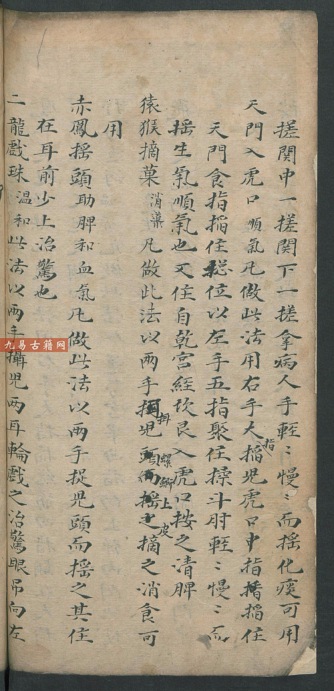 搓関中一搓関下一搓拿病人手輕〻慢〻而摇化痰可用
天門入虎口順氣凢做此法用右手大指搯児虎口中指搯住
天門食指搯住総位以左手五指聚住揉斗肘輕〻慢〻而
摇生氣順氣也又住自乾宮経坎艮入虎口按之清脾
猿猴摘菓消藥凢做此法以兩手摇児頭而摇之摘之消食可
螺螄上皮
用
赤鳳摇頭助脾和血氣凢做此法以兩手捉児頭而摇之其住
在耳前少上治驚也
二龍戲珠温和此法以兩手攝児兩耳輪戲之治驚眼吊向左
九易古籍网